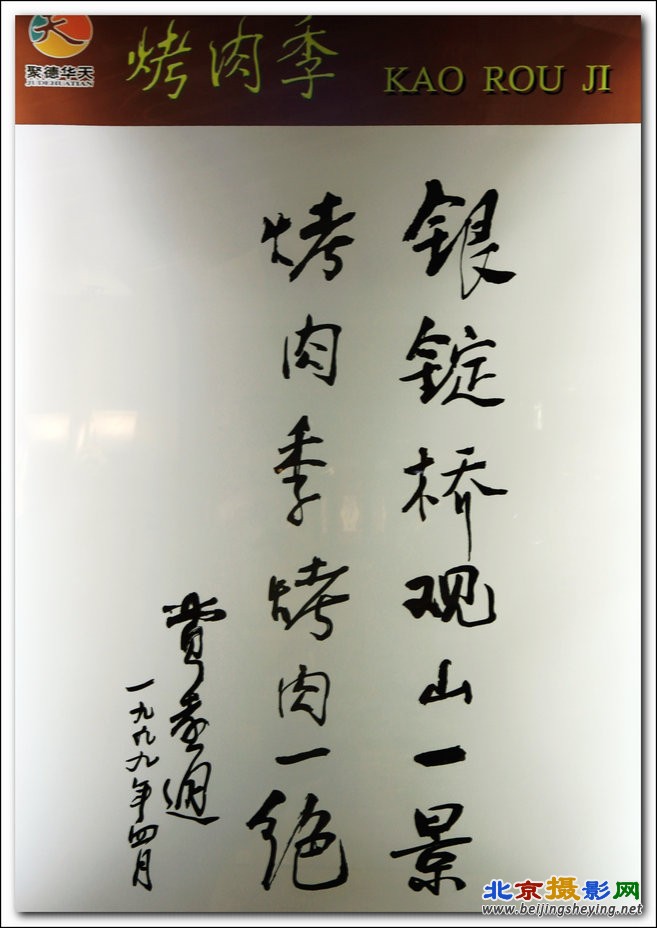 聚德华天
JUDEHUATIAN
烤肉季 KAO ROU JI
银锭桥观山一景
烤肉季烤肉一绝
费孝通
一九九九年四月
北京摄影网
www.beijingsheying.net